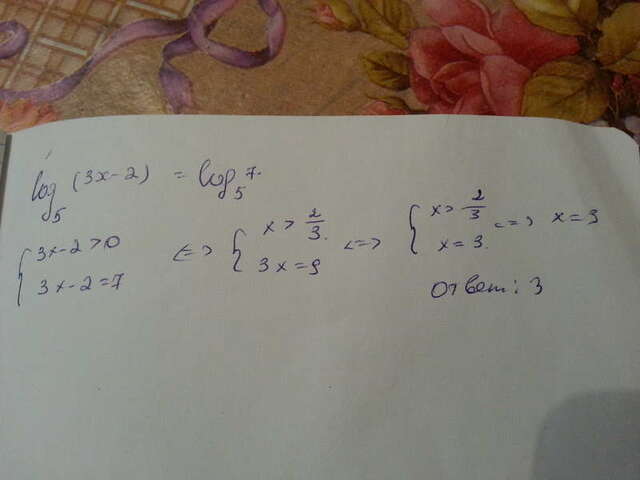 log₅(3x-2) = log₅7.
{ 3x-2>0 <=> { x > 2/3. <=> { x > 2/3 <=> x = 3
{ 3x-2=7 { 3x=9 { x=3.
Ответ: 3